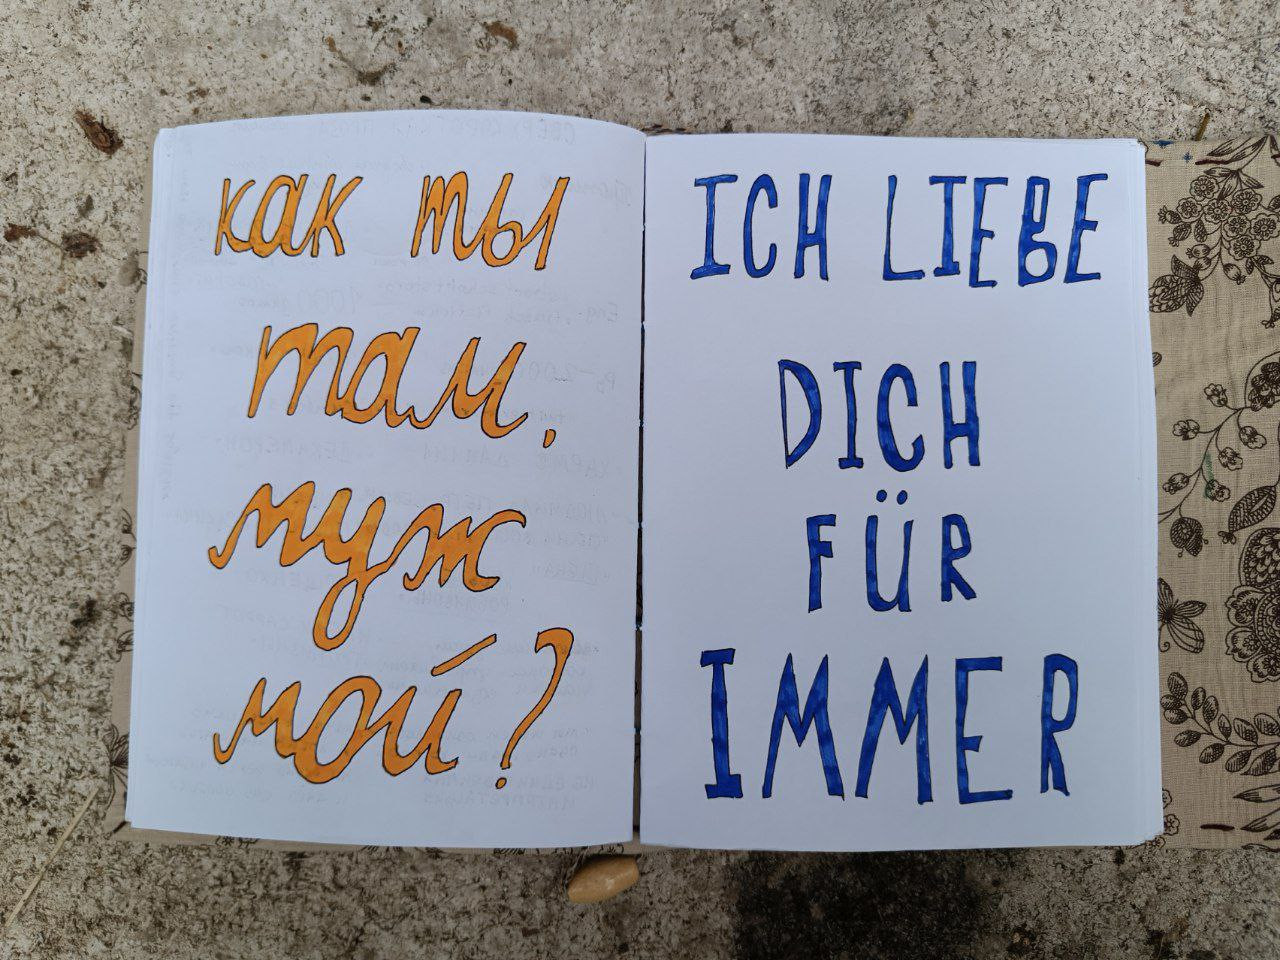 как ты
там,
муж
мой?
ICH LIEBE
DICH
FÜR
IMMER